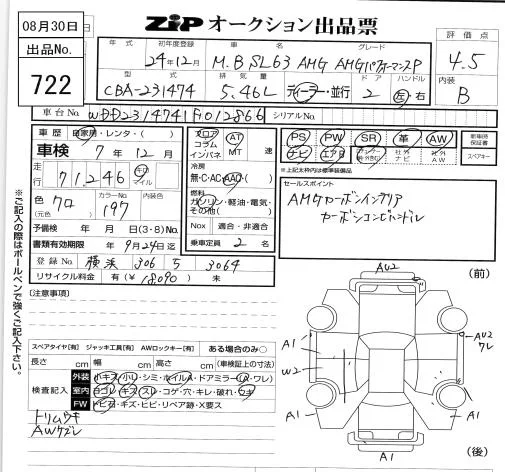 08月30日
出品No.
722
ZiP オークション出品票
年式
初年度登録
グレード
24年12月
M.B SL63 AMG AMGパフォーマンスP
評価点
4.5
内装
B
型式
排気量
ドア
ハンドル
CBA-231474
5.46L
ディーラー・並行
2
左・右
車台No.
WDD2314741F012866
シリアルNo.
車歴
自家用・レンタ・( )
車検
7年12月
走行
71,246
キロ
マイル
色
クロ
(元色)
カラーNo.
197
内装色
予備検 年 月 日(3・8)No.
書類有効期限 9月24日迄
登録No. 横浜 306 5 3064
リサイクル料金 有(¥18090) 未
フロア
コラム
インパネ
AT
MT
速
冷房
無・C・AC・AAC・( )
燃料
ガソリン・軽油・電気・
その他( )
Nox 適合・非適合
乗車定員 2 名
PS
PW
SR
革
AW
ナビ
エアB
社外
ナビ
社外
AW
新車時
保証書
スペアキー
※上記太枠内は標準装備品
セールスポイント
AMGカーボンインテリア
カーボンコンビハンドル
[注意事項]
スペアタイヤ[有] ジャッキ工具[有] AWロックキー[有] ある場合のみ○
長さ cm 幅 cm 高さ cm (車検証上の寸法)
検査記入
外装
小キズ・小U・シミ・ホイルA・ドアミラー(A・ワレ)
室内
ヨゴレ・キズ・スレ・コゲ・穴・キレ・破れ・ウキ
FW
トビ石・キズ・ヒビ・リペア跡・X要ス
トリムウキ
AWケズレ
(前)
AU2
A1
W2
A1
AU2
ワレ
A1
A1
(後)
※ご記入の際はボールペンで強くご記入下さい。